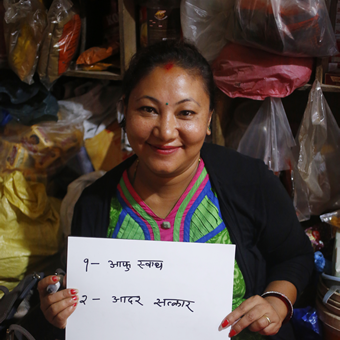 १- आफु स्वाथ
२- आदर सत्कार